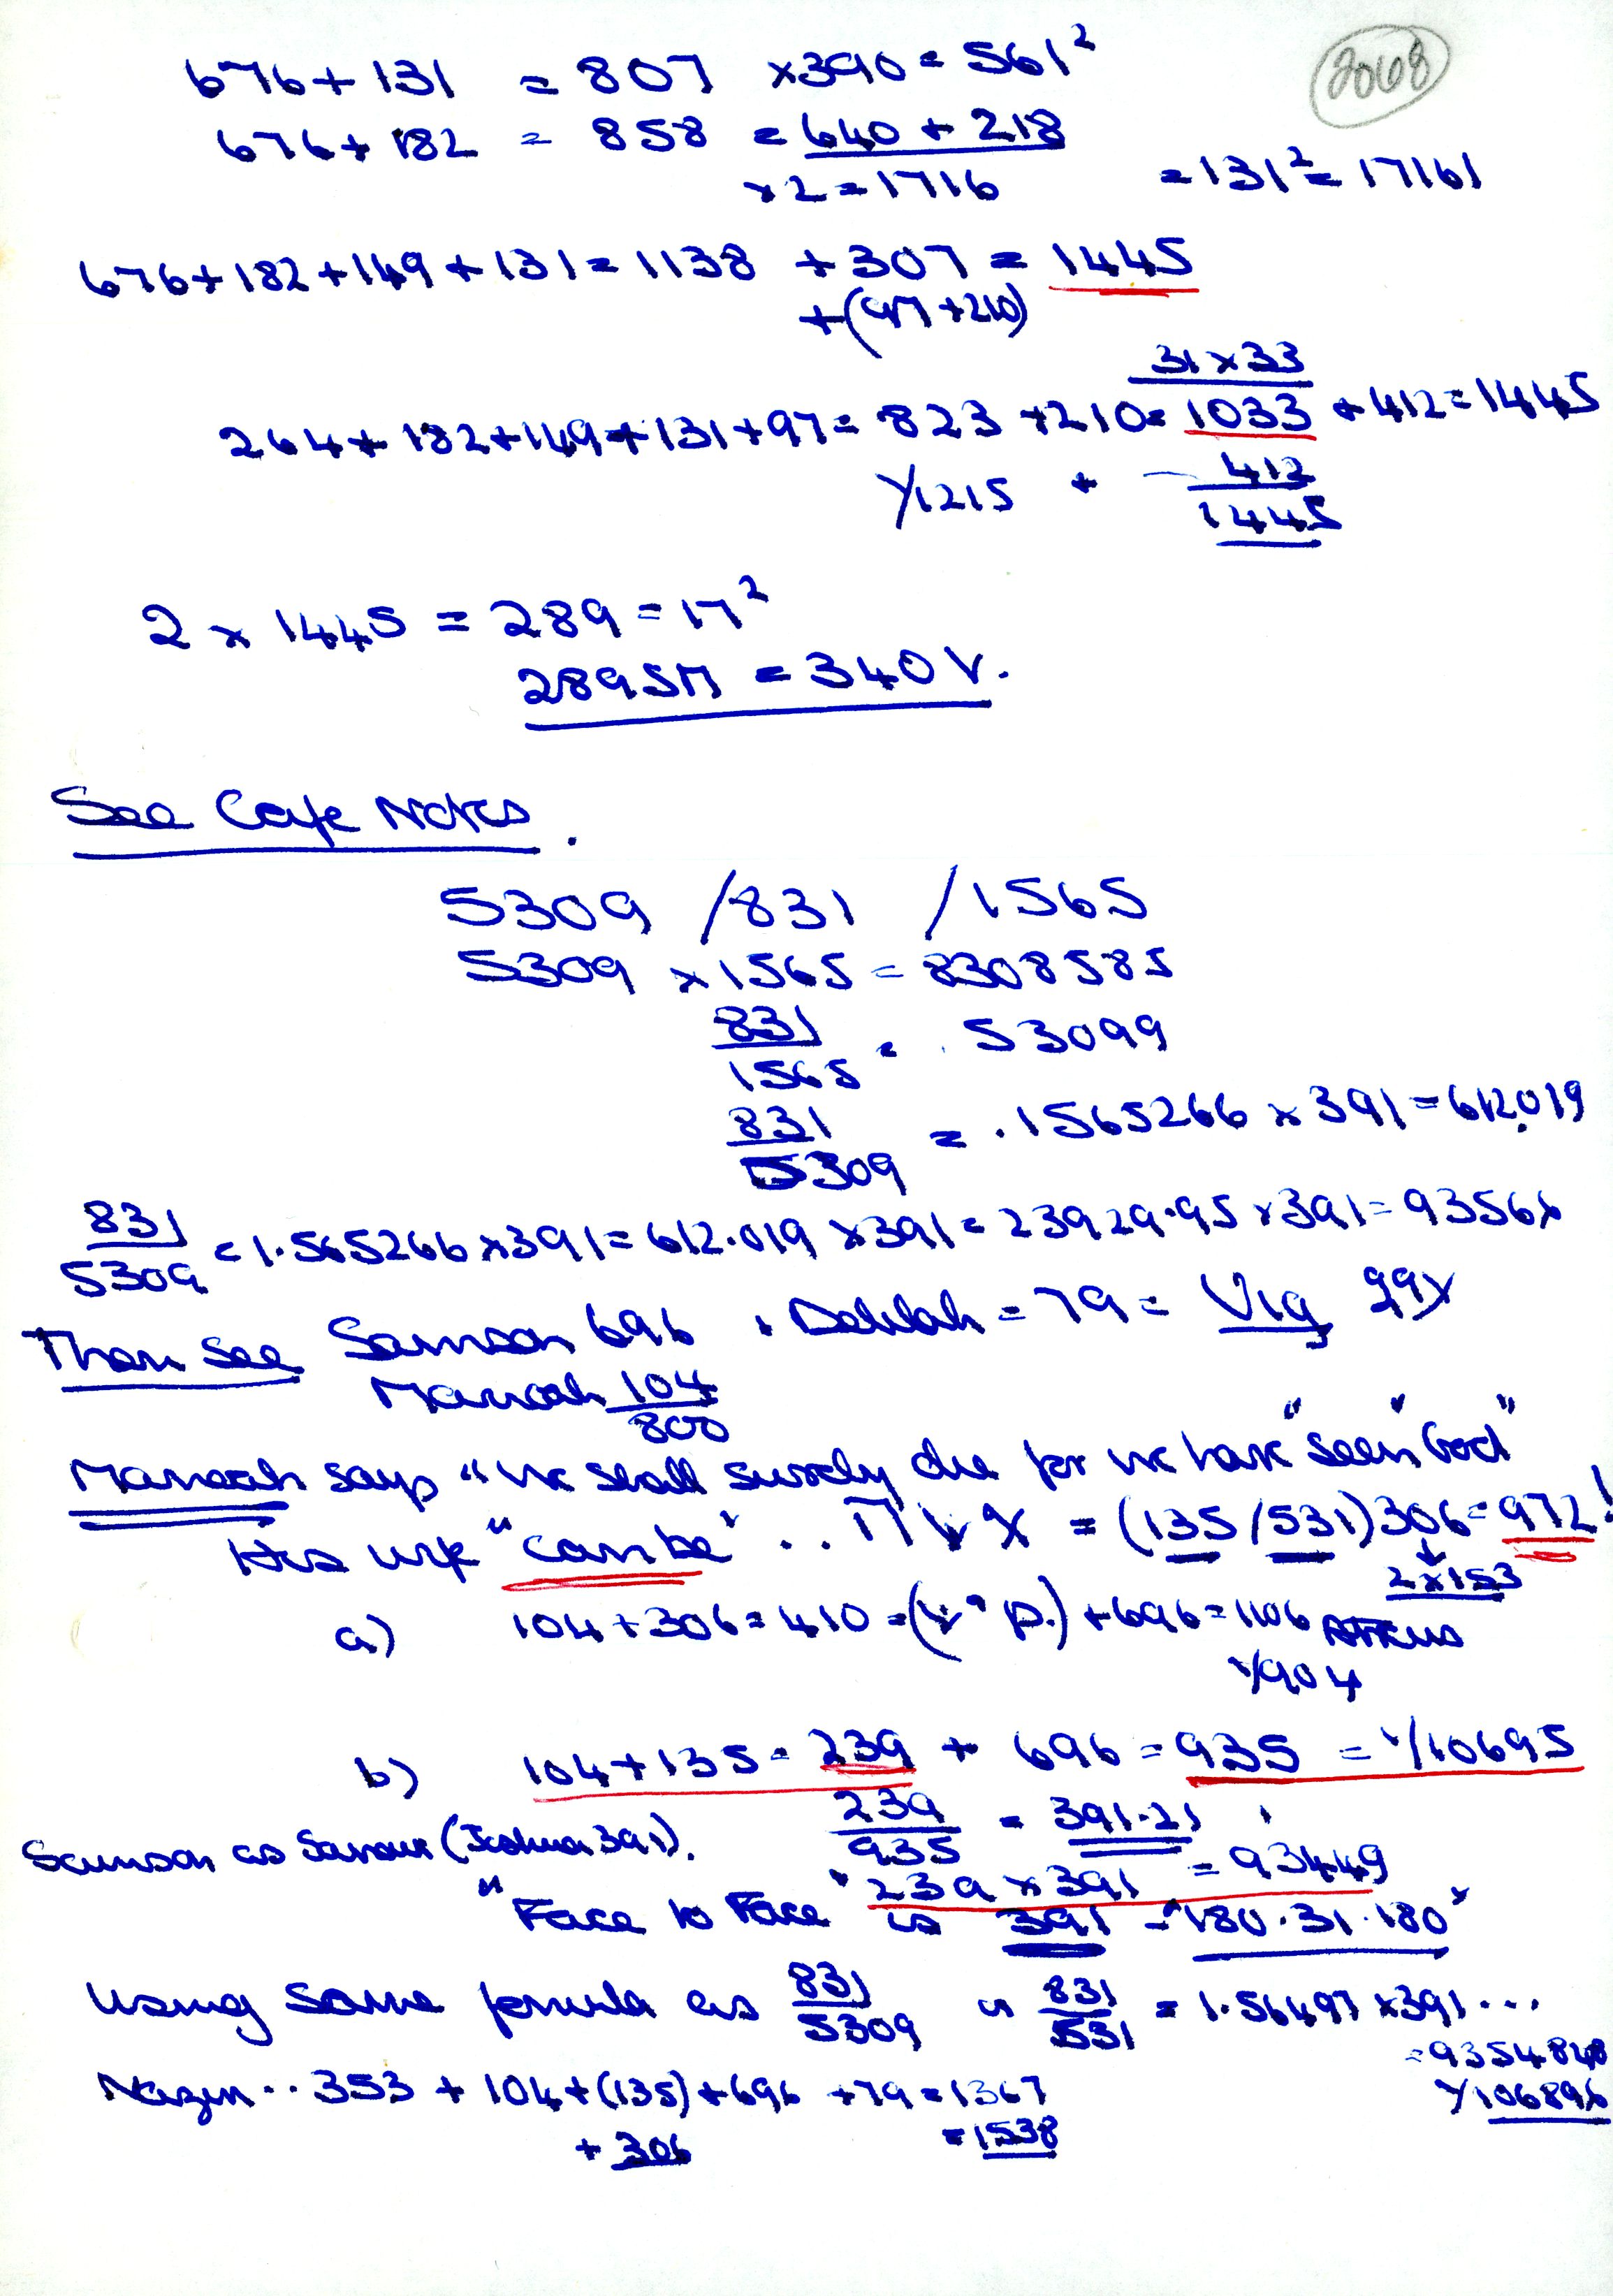 2068
676 + 131 = 807 x390 = 561²
676 + 182 = 858 = 640 + 218
x 2 = 1716 = 131² = 17161
676 + 182 + 149 + 131 = 1138 + 307 = 1445
+(97 + 210)
31 x 33
264 + 182 + 149 + 131 + 97 = 823 + 210 = 1033 + 412 = 1445
Y1215 + 412
1445
2 x 1445 = 289 = 17²
289SM = 340V.
See Cafe Notes.
5309 /831 /1565
5309 x 1565 = 8308585
831/1565 = .53099
831/5309 = .1565266 x 391 = 612.019
831/5309 = 1.565266 x 391 = 612.019 x 391 = 23929.95 x 391 = 93566
Then See Samson 696 , Delilah = 79 =
Manoah 104
800
Manoah says "we shall surely die for we have "seen" God"
His wife "can be" .. = (135/531) 306 = 972!
2 x 153
a) 104 + 306 = 410 = ( p.) + 696 = 1106
Y904
b) 104 + 135 = 239 + 696 = 935 = Y10695
239/935 = 391.21
Samson as Saviour (Joshua 391).
239 x 391 = 93449
"Face to Face" is 391 = "180.31.180"
Using same formula as 831/5309 831/531 = 1.56497 x 391 ...
= 9354848
Y106896
.. 353 + 104 + (135) + 696 + 79 = 1367
+ 306 = 1538